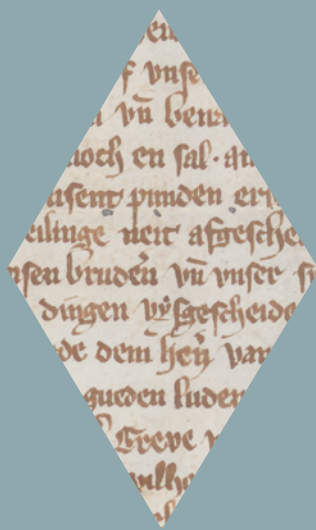 vnse
vn̄
noch en sal · an
sent punden er
eilinge neit afgesche
nsen brudeṅ vn̄ vnser
dingen vÿsgescheide
de dem heṅ van
gueden luden
Greve
wilhe